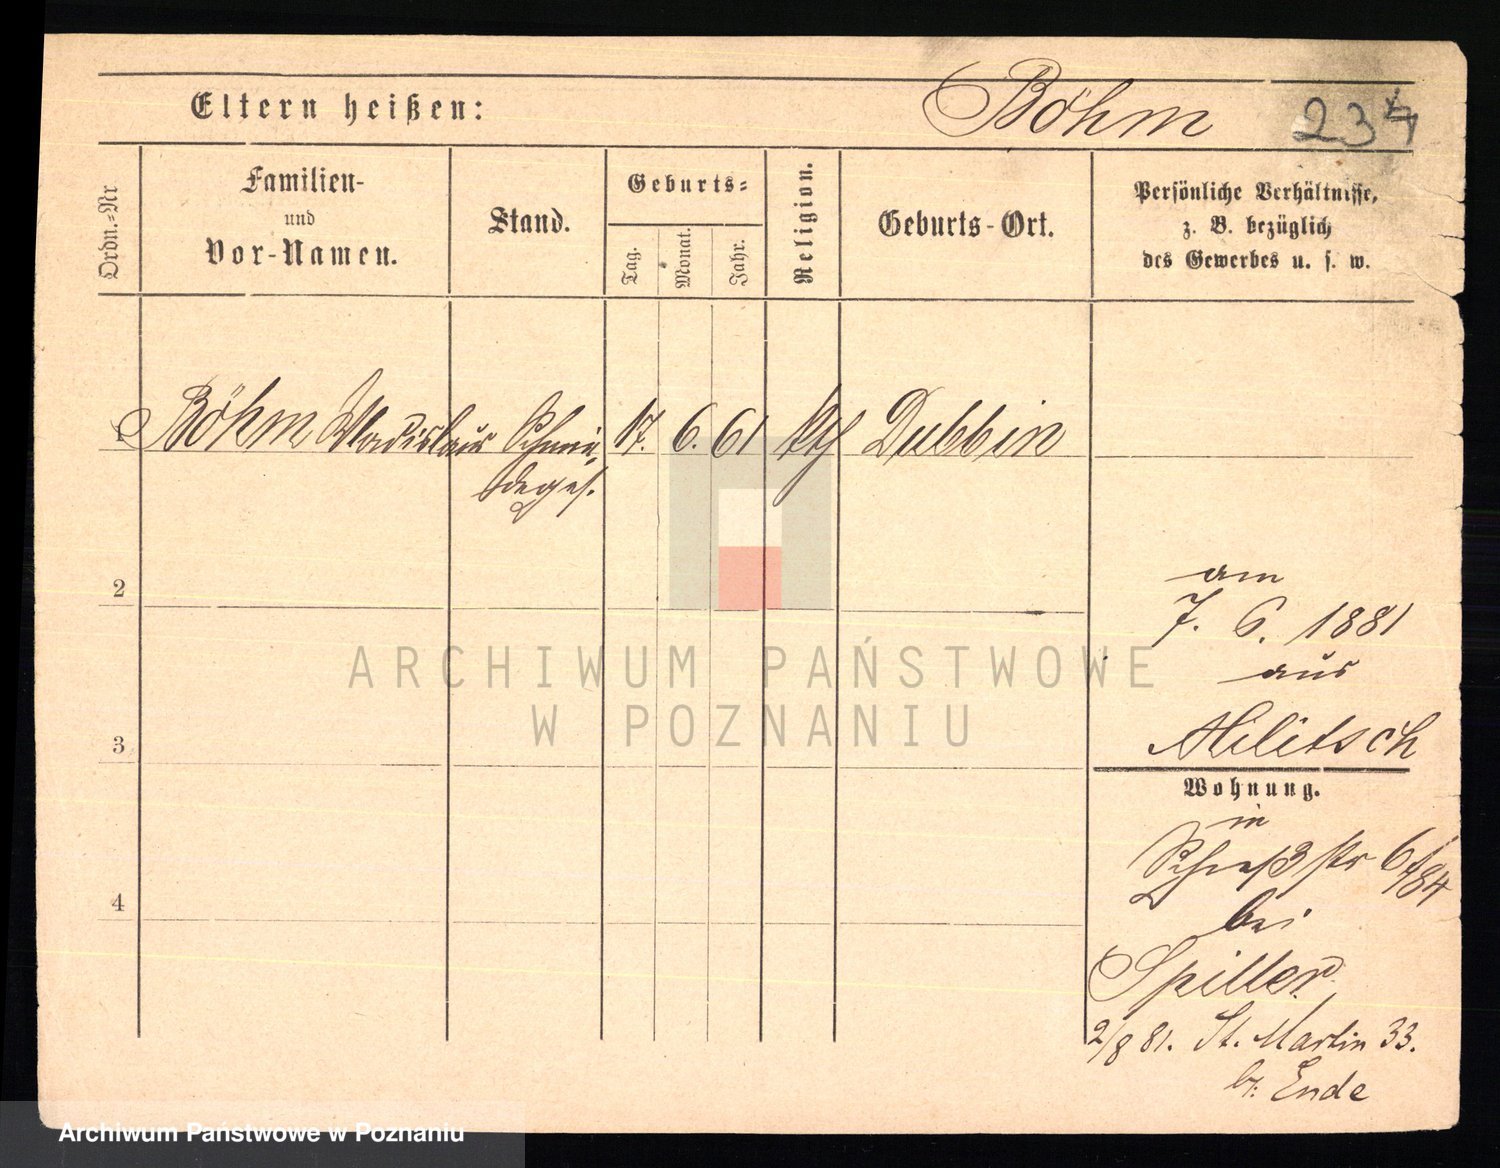 Eltern heißen:
Böhm
234
Ordn.=Nr
Familien-
und
Vor-Namen.
Stand.
Geburts=
Tag.
Monat.
Jahr.
Religion.
Geburts-Ort.
Persönliche Verhältnisse,
z. B. bezüglich
des Gewerbes u. s. w.
1 Böhm Wladislaus Schmie= 17. 6. 61 Dubbin
deges.
2
3
4
am
7. 6. 1881
aus
Militsch
Wohnung.
in
Schieß str 6
bei
Spiller
2/8 81. St. Martin 33.
b. Ende
ARCHIWUM PAŃSTWOWE
W POZNANIU
Archiwum Państwowe w Poznaniu